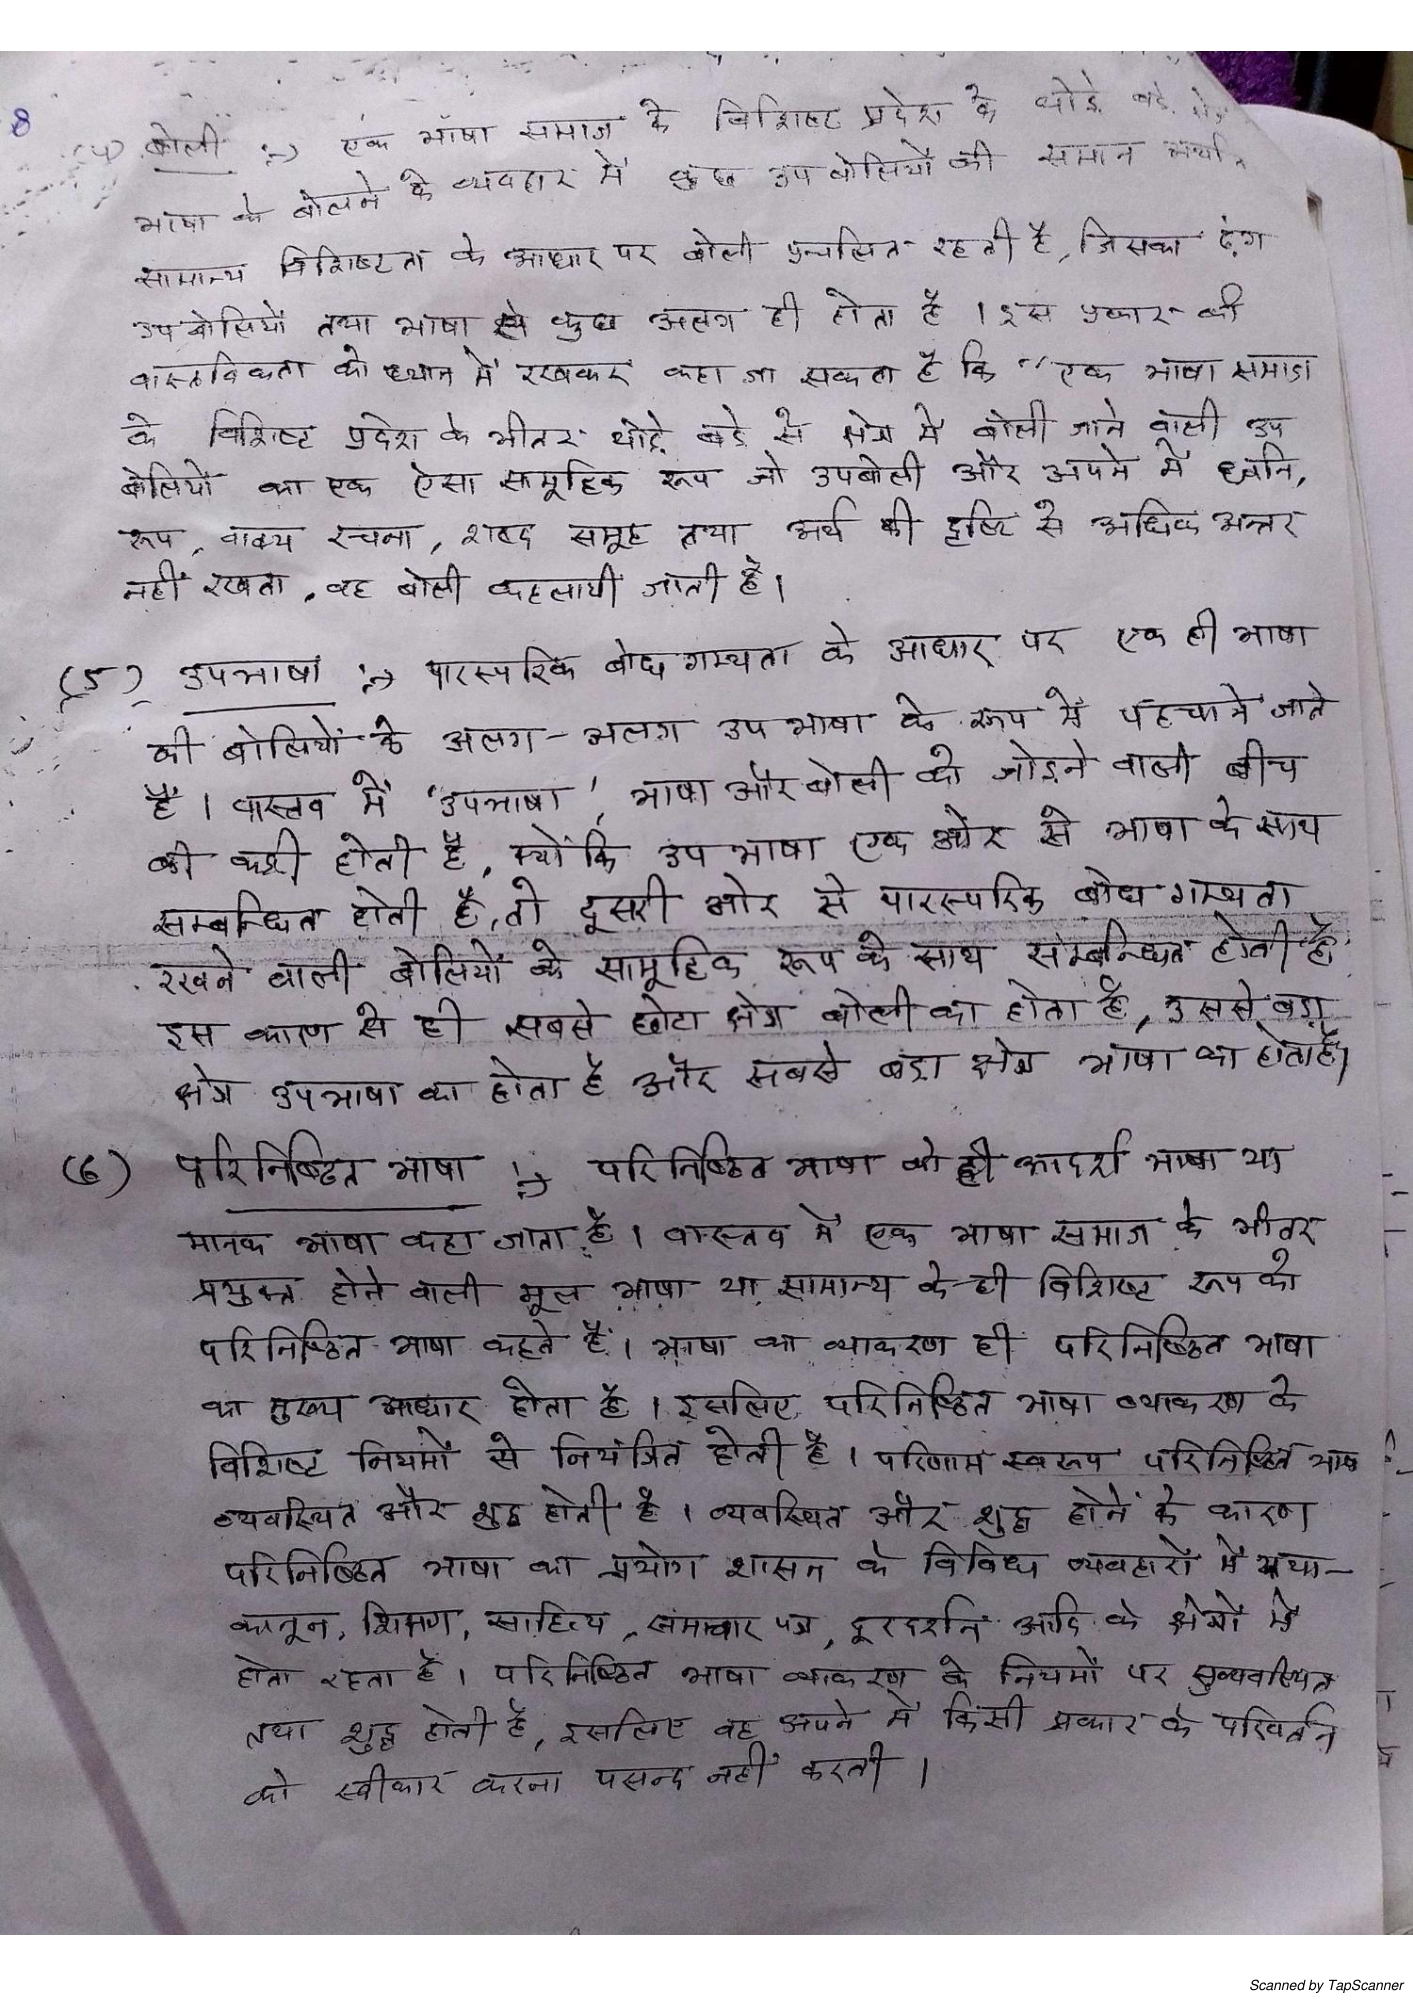 8
(4) बोली :→ एक भाषा समाज के विशिष्ट प्रदेश के थोडे बडे
भाषा के बोलने के व्यवहार में कुछ उपबोलियों की समान अर्थात
सामान्य विशिष्टता के आधार पर बोली प्रचलित रहती है, जिसका ढंग
उपबोलियों तथा भाषा से कुछ अलग ही होता है । इस प्रकार की
वास्तविकता को ध्यान में रखकर कहा जा सकता है कि “एक भाषा समाज
के विशिष्ट प्रदेश के भीतर थोड़े बडे से क्षेत्र में बोली जाने वाली उप
बोलियों का एक ऐसा सामूहिक रूप जो उपबोली और अपने में ध्वनि,
रूप, वाक्य रचना, शब्द समूह तथा अर्थ की दृष्टि से अधिक अन्तर
नहीं रखता, वह बोली कहलायी जाती है ।
(5) उपभाषा :→ पारस्परिक बोधगम्यता के आधार पर एक ही भाषा
की बोलियों के अलग-अलग उपभाषा के रूप में पहचाने जाते
हैं । वास्तव में 'उपभाषा', भाषा और बोली को जोडने वाली बीच
की कडी होती है, क्योंकि उपभाषा एक ओर से भाषा के साथ
सम्बन्धित होती है, तो दूसरी ओर से पारस्परिक बोधगम्यता
रखने वाली बोलियों के सामूहिक रूप के साथ संम्बन्धित होती है
इस कारण से ही सबसे छोटा क्षेत्र बोली का होता है, उससे बडा
क्षेत्र उपभाषा का होता है और सबसे बडा क्षेत्र भाषा का होता है।
(6) परिनिष्ठित भाषा :→ परिनिष्ठित भाषा को ही आदर्श भाषा या
मानक भाषा कहा जाता है । वास्तव में एक भाषा समाज के भीतर
प्रयुक्त होने वाली मूल भाषा या सामान्य के ही विशिष्ट रूप को
परिनिष्ठित भाषा कहते हैं । भाषा का व्याकरण ही परिनिष्ठित भाषा
का मुख्य आधार होता है । इसलिए परिनिष्ठित भाषा व्याकरण के
विशिष्ट नियमों से नियंत्रित होती है । परिणाम स्वरूप परिनिष्ठित भाषा
व्यवस्थित और शुद्ध होती है । व्यवस्थित और शुद्ध होने के कारण
परिनिष्ठित भाषा का प्रयोग शासन के विविध व्यवहारों में यथा-
कानून, शिक्षण, साहित्य, समाचार पत्र, दूरदर्शन आदि के क्षेत्रों में
होता रहता है । परिनिष्ठित भाषा व्याकरण के नियमों पर सुव्यवस्थित
तथा शुद्ध होती है, इसलिए वह अपने में किसी प्रकार के परिवर्तन
को स्वीकार करना पसन्द नहीं करती ।
Scanned by TapScanner